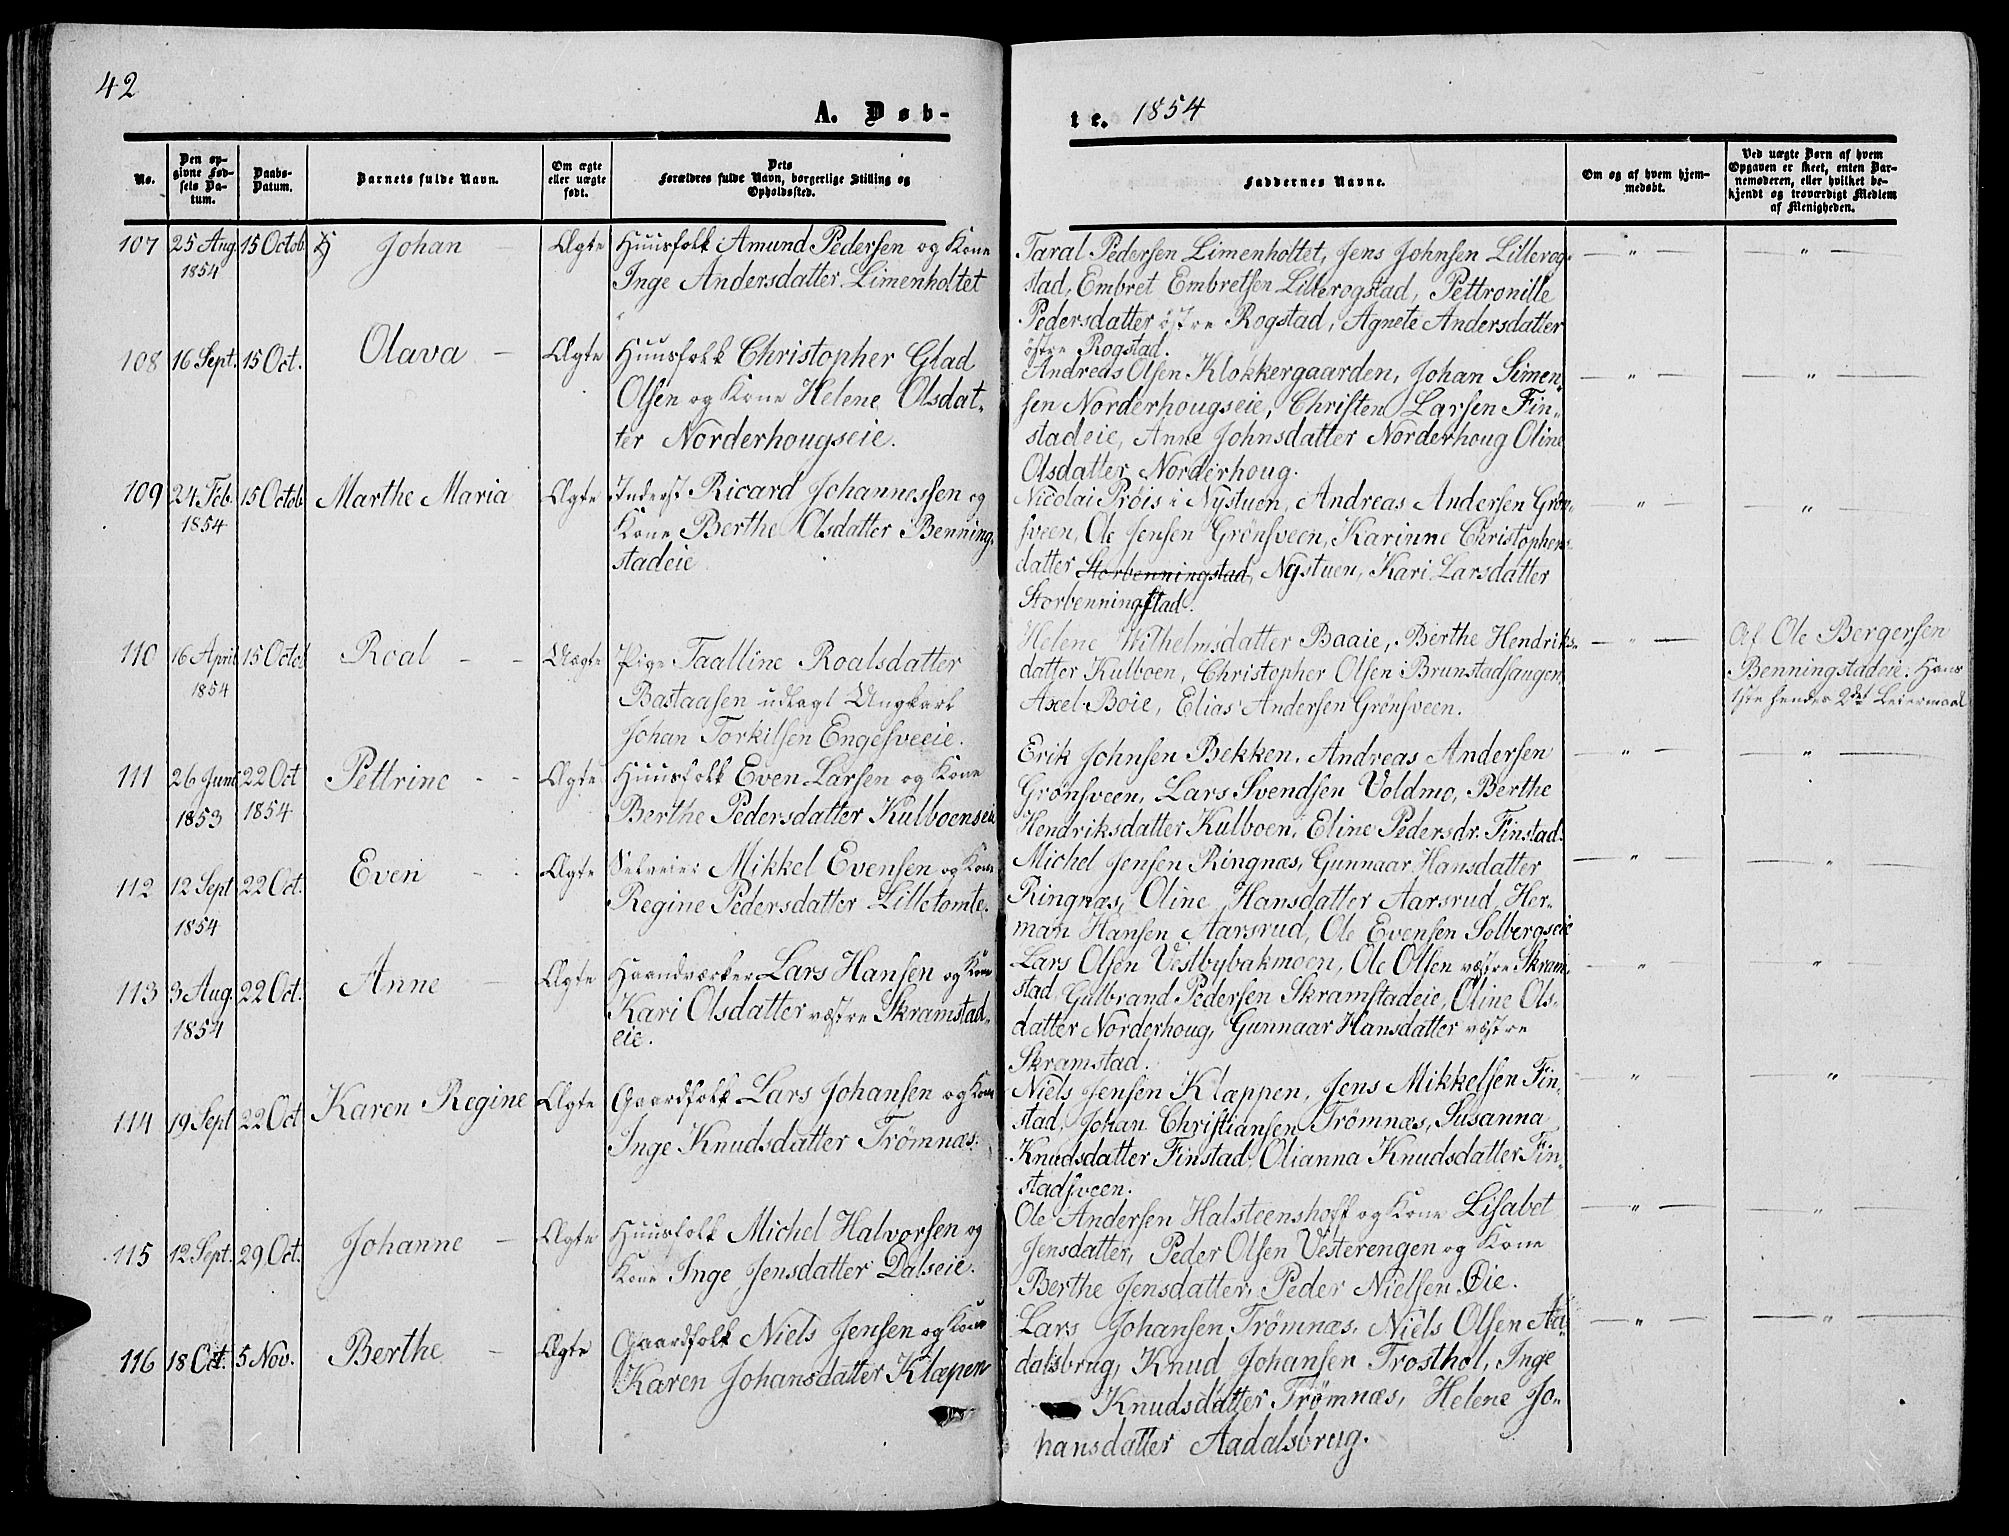 42
A. Døb-
te. 1854
No.
Den op-
givne Fød-
sels Da-
tum.
Daabs-
Datum.
Barnets fulde Navn.
Om ægte
eller uægte
født.
Dets
Forældres fulde Navn, borgerlige Stilling og
Opholdssted.
Faddernes Navne.
Om og af hvem hjem-
medøbt.
Ved uægte Børn af hvem
Opgaven er skeet, enten Bar-
nemoderen, eller hvilket be-
kjendt og troværdigt Medlem
af Menigheden.
107 25 Aug 1854 15 Octob. Johan — Ægte
Huusfolk Amund Pedersen og Kone
Inge Andersdatter Limenholtet
Taral Pedersen Limenholtet, Jens Johnsen Lillerog-
stad, Embret Embretsen Lillerogstad, Pettronille
Pedersdatter østre Rogstad, Agnete Andersdatter
østre Rogstad.
— " —
— " —
108 16 Sept. 15 Oct. Olava — Ægte
Huusfolk Christopher Glad
Olsen og Kone Helene Olsdat-
ter Norderhougseie.
Andreas Olsen Klokkergaarden, Johan Simen-
sen Norderhougseie, Christen Larsen Fin-
stadeie, Anne Johnsdatter Norderhoug Oline
Olsdatter Norderhoug.
— " —
— " —
109 24 Feb. 1854 15 Octob Marthe Maria Ægte
Inderst Ricard Johannessen og
Kone Berthe Olsdatter Benning-
stadeie
Nicolai Prøis i Nystuen, Andreas Andersen Grøn-
sveen, Ole Jensen Grønsveen, Karinne Christophers-
datter Storbenningstad, Nystuen, Kari Larsdatter
Storbenningstad.
— " —
— " —
110 16 April 1854 15 Octob Roal — Uægte
Pige Taalline Roalsdatter
Bastaasen udlagt Ungkarl
Johan Torkilsen Engesveeie.
Helene Wilhelmsdatter Baaie, Berthe Hendriks-
datter Kulboen, Christopher Olsen Brunstadsaugen,
Axel Boie, Elias Andersen Grønsveen.
— " —
Af Ole Bergersen
Benningstadeie. Hans
1ste hendes 2det Leiermaal
111 26 Juni 1853 22 Oct 1854 Pettrine — Ægte
Huusfolk Even Larsen og Kone
Berthe Pedersdatter Kulboenseie
Erik Johnsen Bekken, Andreas Andersen
Grønsveen, Lars Svendsen Voldmo, Berthe
Hendriksdatter Kulboen, Eline Pedersdr. Finstad.
— " —
— " —
112 12 Sept 1854 22 Oct. Even — Ægte
Selveier Mikkel Evensen og Kone
Regine Pedersdatter Lilletomte.
Michel Jensen Ringnæs, Gunnaar Hansdatter
Ringnæs, Oline Hansdatter Aarsrud, Her-
man Hansen Aarsrud, Ole Evensen Solbergseie
— " —
— " —
113 3 Aug. 1854 22 Oct. Anne — Ægte
Haandværker Lars Hansen og Kone
Kari Olsdatter væstre Skramstad-
eie.
Lars Olsen Vestbybakmoen, Ole Olsen væstre Skram-
stad, Gulbrand Pedersen Skramstadeie, Oline Ols-
datter Norderhoug, Gunnaar Hansdatter væstre
Skramstad.
— " —
— " —
114 19 Sept 22 Oct Karen Regine Ægte
Gaardfolk Lars Johansen og Kone
Inge Knudsdatter Trømnæs.
Niels Jensen Klæppen, Jens Mikkelsen Fin-
stad, Johan Christiansen Trømnæs, Susanna
Knudsdatter Finstad, Olianna Knudsdatter Fin-
stadsveen.
— " —
— " —
115 12 Sept. 29 Oct. Johanne — Ægte
Huusfolk Michel Halvorsen og
Kone Inge Jensdatter Dalseie.
Ole Andersen Halsteenshoff og Kone Lisabet
Jensdatter, Peder Olsen Vesterengen og Kone
Berthe Jensdatter, Peder Nielsen Øie.
— " —
— " —
116 18 Oct. 5 Nov. Berthe — Ægte
Gaardfolk Niels Jensen og Kone
Karen Johansdatter Klæpen
Lars Johansen Trømnæs, Niels Olsen Aa-
dalsbrug, Knud Johansen Trosthol, Inge
Knudsdatter Trømnæs, Helene Jo-
hansdatter Aadalsbrug.
— " —
— " —